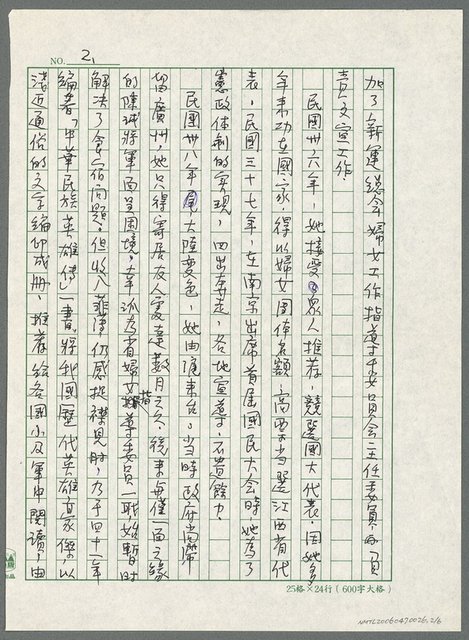 NO. 2
加了新運總會婦女工作指導委員會主任委員,而負
責文宣工作.
民國卅六年,她接受眾人推荐,競選國大代表,因她多
年來功在國家,得以婦女團体名額,高票當選江西省代
表,民國三十七年,在南京出席首屆國民大会時她為了
憲政体制的實現,四出奔走,各地宣導,不遺餘力.
民國卅八年尾大陸变色,她由滬來台.当時政府尚滯
留廣州,她只得寄居友人家達數月之久,後來每僅一面之緣
的陳誠將軍面呈困境,幸派為省婦女指導委員一職始暫時
解決了食宿問題.但收入菲薄仍感捉襟見肘,乃于四十一年
編著「中華民族英雄傳」一書,將我國歷代英雄豪傑,以
淺近通俗的文字編印成冊,推荐給各國小及軍中閱讀,由
25格×24行(600字大格)
NMTL20060470026.2/6